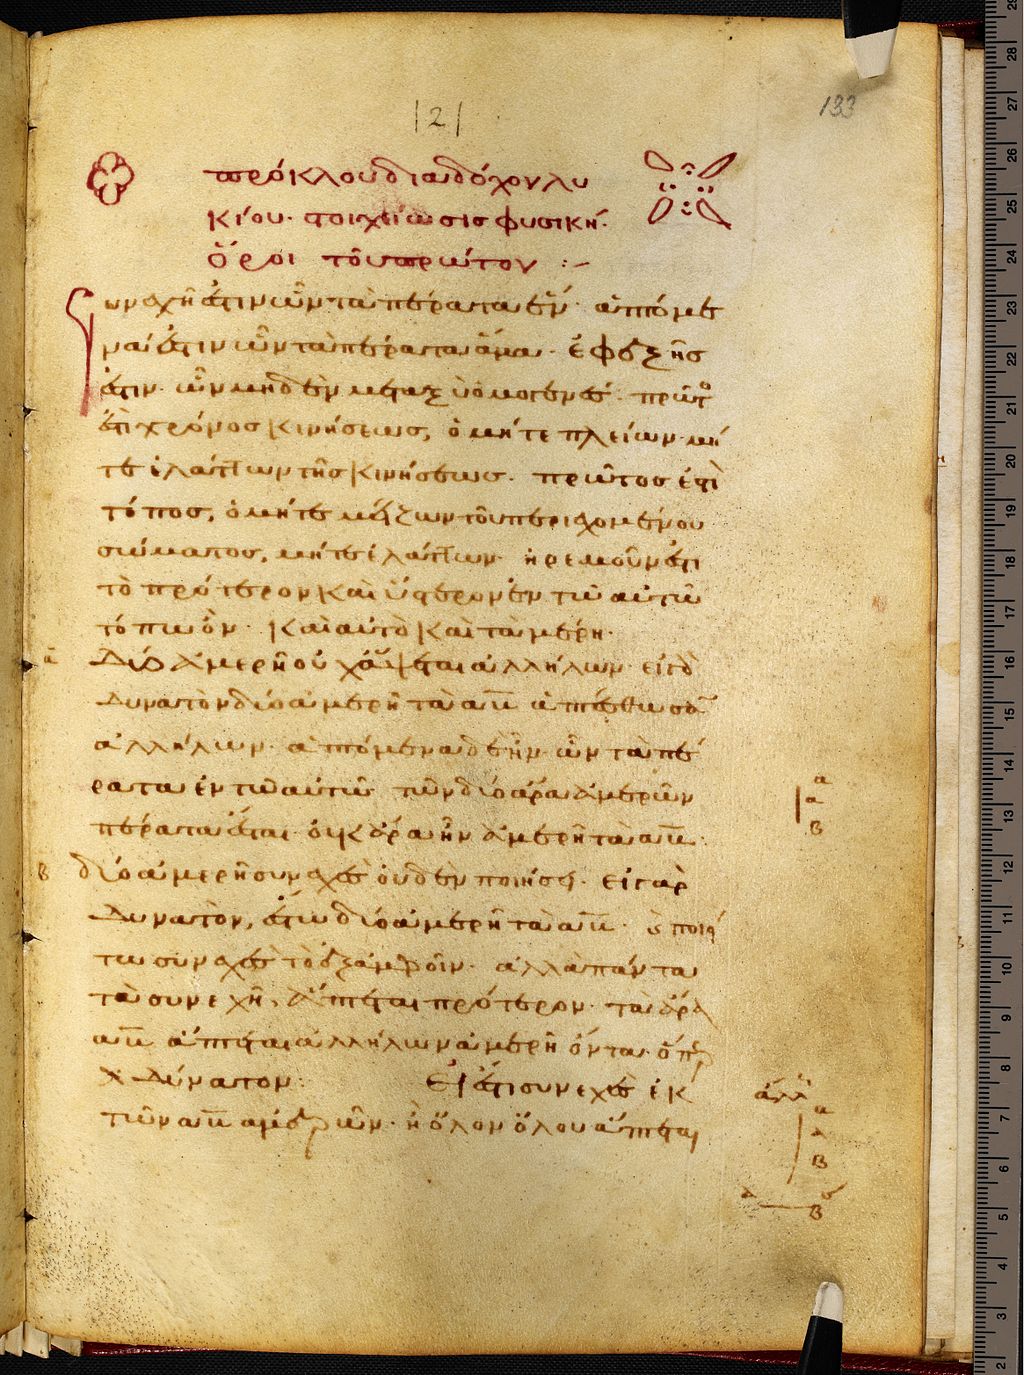 121
133
πρόκλου διαδόχου λυ
κίου· στοιχείωσις φυσική·
ὅροι τοῦ πρώτου :~
Συνεχῆ ἐστιν ὧν τὰ πέρατα ἕν· ἁπτόμε
να ἐστιν ὧν τὰ πέρατα ἅμα· ἐφεξῆς
ἐστιν· ὧν μηδὲν μεταξὺ ὁμογενές· πρῶτος
ἐστι χρόνος κινήσεως, ὁ μήτε πλείων μή
τε ἐλάττων τῆς κινήσεως· πρῶτος ἐστὶ
τόπος, ὁ μήτε μείζων τοῦ περιεχομένου
σώματος, μήτε ἐλάττων· ἠρεμοῦν ἐστι
τὸ πρότερον καὶ ὕστερον ἐν τῷ αὐτῷ
τόπῳ ὄν· καὶ αὐτὸ καὶ τὰ μέρη·
α Δύο ἀμερῆ οὐχ ἅψεται ἀλλήλων· εἰ γὰρ
δυνατὸν δύο ἀμερῆ τὰ αβ ἁπτέσθωσαν
ἀλλήλων· ἁπτόμενα δὲ ἦν· ὧν τὰ πέ
ρατα ἐν τῷ αὐτῷ· τῶν δύο ἄρα ἀμερῶν
πέρατα ἔσται· οὐκ ἄρα ἦν ἀμερῆ τὰ αβ·
α
α
β
β δύο ἀμερῆ συνεχὲς οὐδὲν ποιήσει· εἰ γὰρ
δυνατὸν, ἔστω δύο ἀμερῆ τὰ αβ· καὶ ποιεί
τω συνεχὲς τὸ ἐξ ἀμφοῖν· ἀλλὰ πάντα
τὰ συνεχῆ, ἅπτεται πρότερον· τὰ ἄρα
αβ ἅπτεται ἀλλήλων ἀμερῆ ὄντα· ὅπερ
ἀδύνατον: Εἰ ἔστι συνεχὲς ἐκ
τῶν αβ ἀμερῶν· ἢ ὅλον ὅλου ἅπτεται
α
β
β